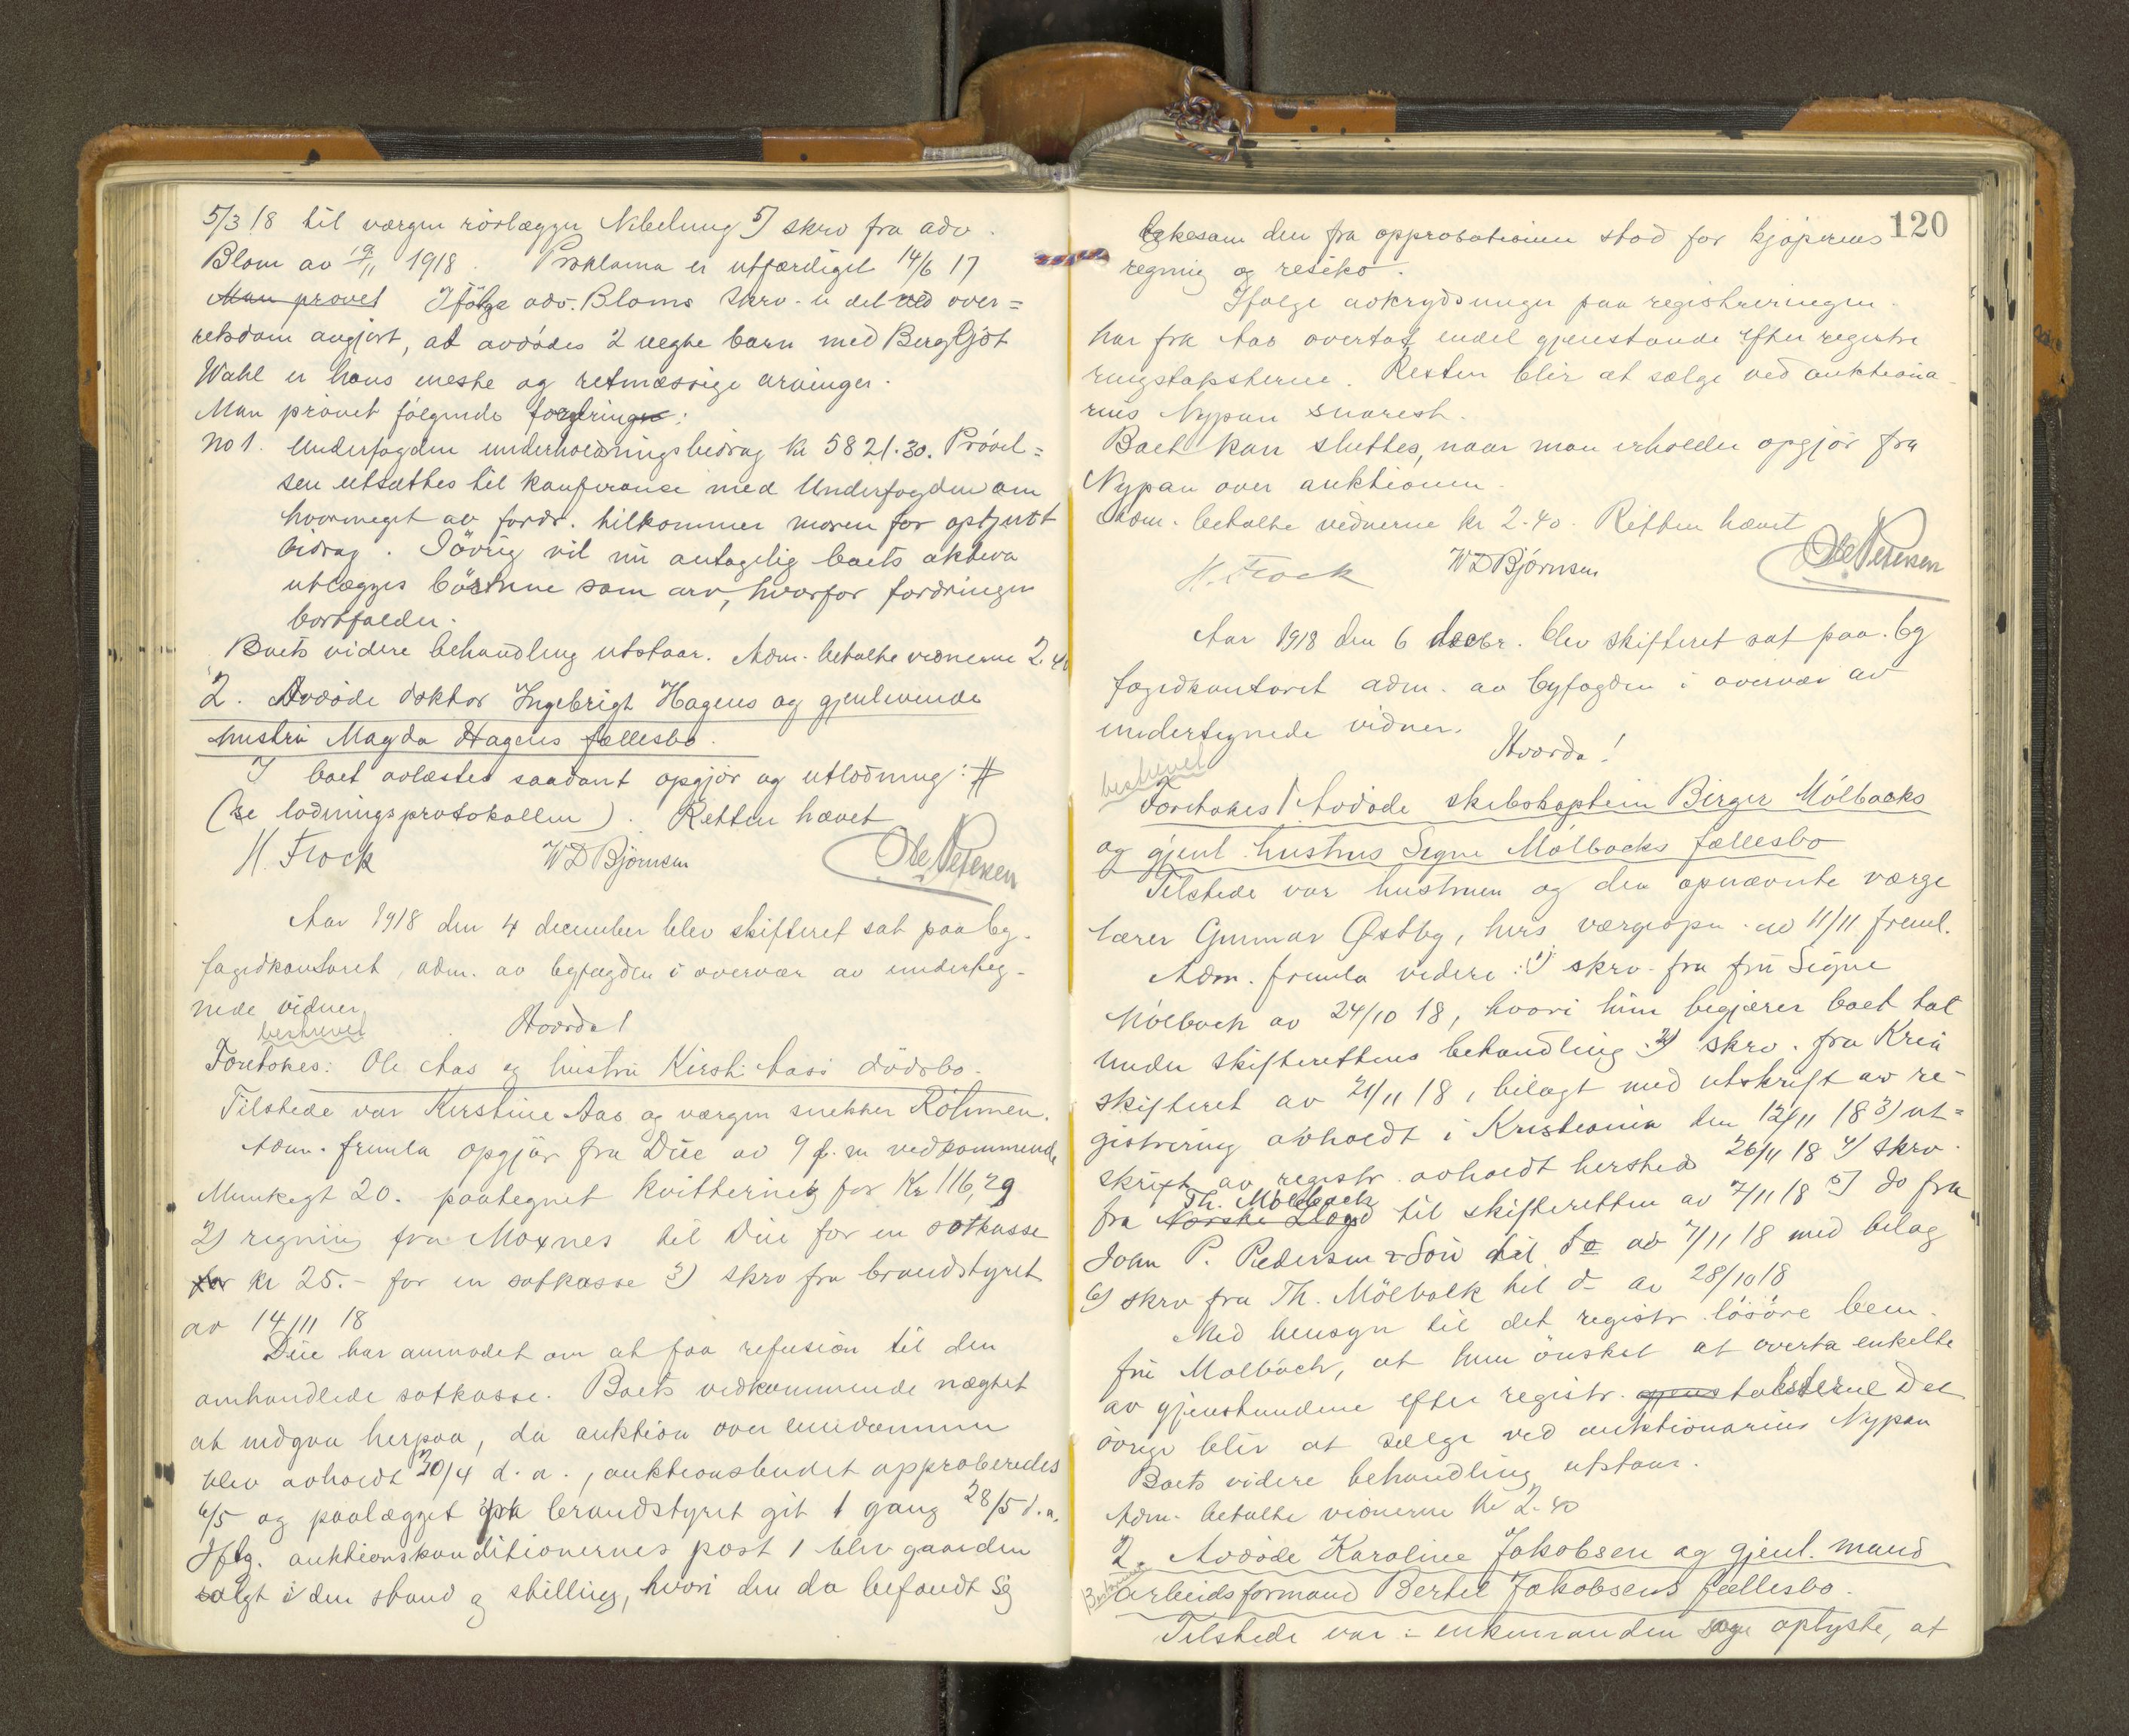 5/3 18 til værgen rörlægger Nibelung 5) skrv fra adv.
Blom av 19/11 1918. Proklama er utfærdiget 14/6 17
Man prövet Ifölge adv. Bloms skrv. er det ved over=
retsdom avgjort, at avdödes 2 uegte barn med Bergljót
Wahl er hans eneste og retmæssige arvinger.
Man prövet fölgende fordringer:
No 1. Underfogden underholdningsbidrag kr 5821.30. Prövel=
sen utsættes til konferanse med Underfogden om
hvormeget av fordr. tilkommer moren for optjent
bidrag. Iövrig vil nu antagelig boets aktiva
utlægges börnene som arv, hvorfor fordringen
bortfalder.
Boets videre behandling utstaar. Adm. betalte vidnerne 2.40
2. Avdöde doktor Ingebrigt Hagens og gjenlevende
hustru Magda Hagens fællesbo.
I boet avlæstes saadant opgjör og utlodning: #
(se lodningsprotokollen). Retten hævet
H. Flock WD Björnsen Ole Petersen
Aar 1918 den 4 december blev skifteret sat paa by-
fogedkontoret, adm. av byfogden i overvær av underteg-
nede vidner
beskrevet Hvorda!
Foretokes: Ole Aas og hustru Kirsti Aas's dödsbo.
Tilstede var Kirstine Aas og værgen snekker Röhmen.
Adm. fremla opgjör fra Düe av 9 f. m vedkommende
Munkegt 20. paategnet kvittering for Kr 116,29
2) regning fra Moxnes til Düe for en sotkasse
for kr 25.- for en sotkasse 3) skrv fra brandstyret
av 14/11 18
Düe har anmodet om at faa refusion til den
omhandlede sotkasse. Boets vedkommende nægtet
at indgaa herpaa, da auktion over eiendommen
blev avholdt 30/4 d. a., auktionsbudet approberedes
6/5 og paalægget fra brandstyret git 1 gang 28/5 d.a.
Iflg. auktionskonditionernes post 1 blev gaarden
solgt i den stand og stilling, hvori den da befandt sig
120
likesom den fra approbationen stod for kjöperens
regning og resiko.
Ifölge avkrydsninger paa registreringen
har frk Aas overtat endel gjenstande efter registre
ringstaksterne. Resten blir at sælge ved auktiona-
rius Nypan snarest.
Boet kan sluttes, naar man erholder opgjör fra
Nypan over auktionen.
Adm. betalte vidnerne kr 2.40. Retten hævet
H. Flock WD Björnsen Ole Petersen
Aar 1918 den 6 decbr. blev skifteret sat paa by
fogedkontoret adm. av byfogden i overvær av
undertegnede vidner.
Hvorda!
beskrevet
Foretokes 1 Avdöde skibskaptein Birger Mölbacks
og gjenl. hustrus Signe Mölbachs fællesbo
Tilstede var hustruen og den opnævnte værge
lærer Gunnar Østby, hvis værgeopn. av 11/11 freml.
Adm. fremla videre: 1) skrv. fra fru Signe
Mölbach av 24/10 18, hvori hun begjærer boet tat
under skifterettens behandling 2) skrv. fra Kr.ia
skifteret av 21/11 18, bilagt med utskrift av re-
gistrering avholdt i Kristiania den 12/11 18 3) ut=
skrift av registr. avholdt hersteds 26/11 18 4) skrv.
Th. Mölbach
fra Norske Lloyd til skifteretten av 7/11 18 5) do fra
John P. Pedersen & Sön til do av 7/11 18 med bilag
6) skrv fra Th. Mölbalk til d- av 28/10 18
Med hensyn til det registr. lösöre bem.
fru Molbach, at hun önsket at overta enkelte
av gjenstandene efter registr. taksterne Det
övrige blir at sælge ved auktionarius Nypan
Boets videre behandling utstaar.
Adm. betalte vidnerne kr 2.40
2. Avdöde Karoline Jakobsen og gjenl. mand
arbeidsformand Bertel Jakobsens fællesbo.
Tilstede var enkemanden oplyste, at